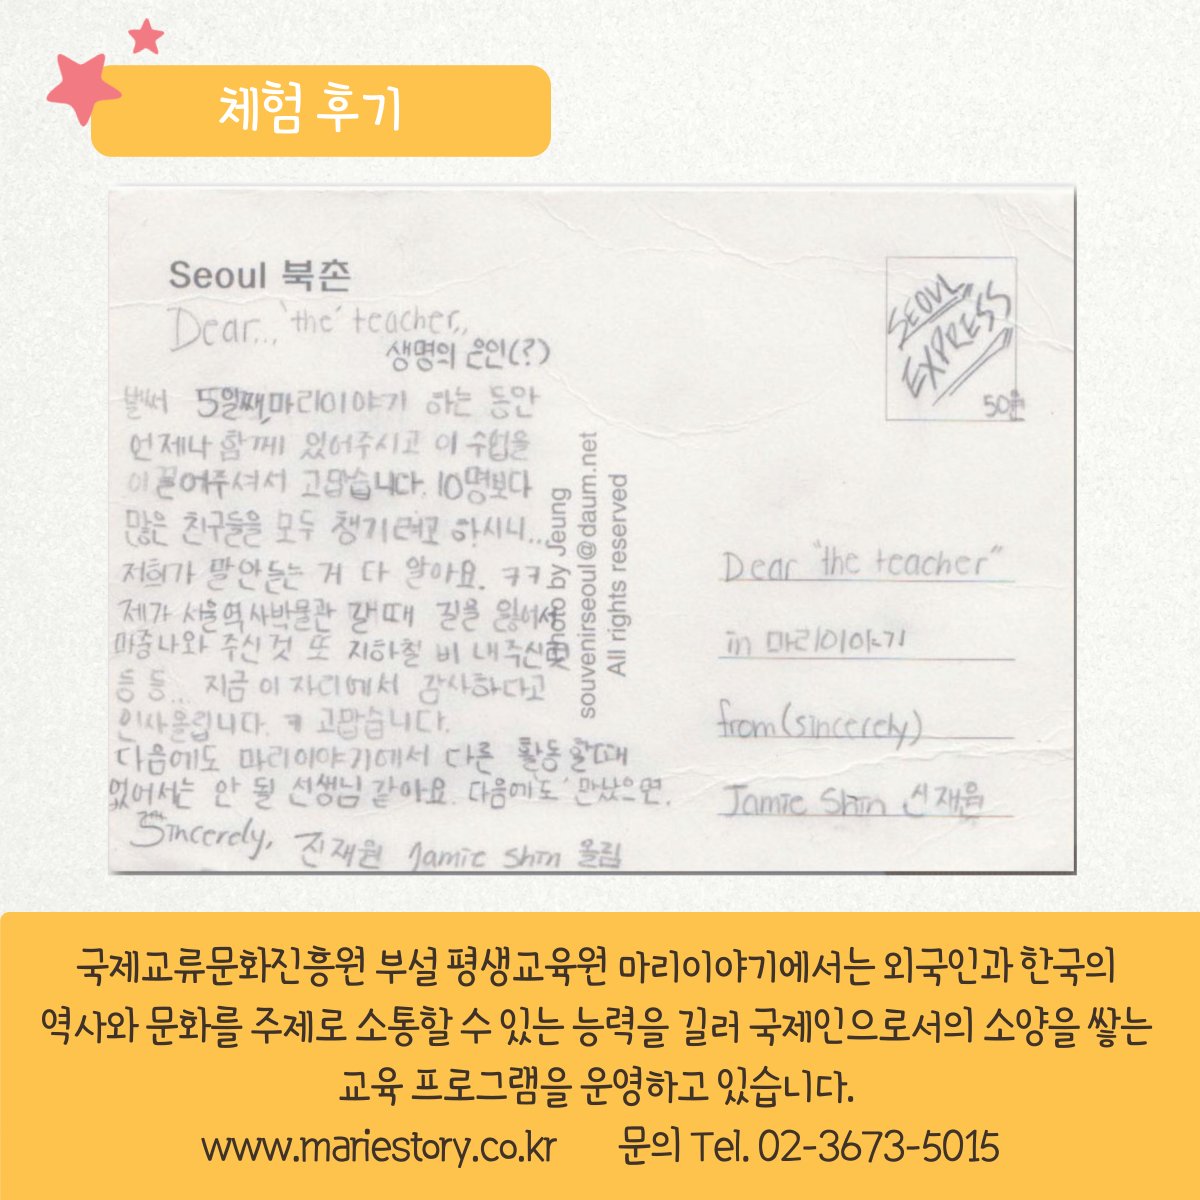 체험 후기
Seoul 북촌
Dear,.,'the' teacher,,
생명의 은인(?)
벌써 5일째, 마리이야기 하는 동안
언제나 함께 있어주시고 이 수업을
이끌어주셔서 고맙습니다. 10명보다
많은 친구들을 모두 챙기려고 하시니...
저희가 말 안듣는 거 다 알아요. ㅋㅋ
제가 서울역사박물관 갈때 길을 잃어서
마중나와 주신 것 또 지하철 비 내주신
등 등... 지금 이 자리에서 감사하다고
인사올립니다. ㅋ 고맙습니다.
다음에도 마리이야기에서 다른 활동할때
없어서는 안 될 선생님 같아요. 다음에도 만났으면.
Sincerely, 신재원 Jamie Shin 올림
photo by Jeung
souvenirseoul@daum.net
All rights reserved
SEOUL
EXPRESS
50원
Dear "the teacher"
in 마리이야기
from(sincerely)
Jamie Shin 신재원
국제교류문화진흥원 부설 평생교육원 마리이야기에서는 외국인과 한국의
역사와 문화를 주제로 소통할 수 있는 능력을 길러 국제인으로서의 소양을 쌓는
교육 프로그램을 운영하고 있습니다.
www.mariestory.co.kr 문의 Tel. 02-3673-5015